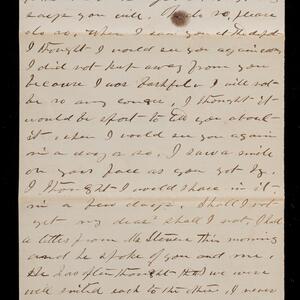 says you will. please
do so, when I saw you at the depot
I thought I would see you again
I did not keep away from you
because I was bashful I will not
be so any I thought it
would be sport to tell you about
it, when I would see you again
in a day or so. I saw a smile
on your face as you got
I thought I would share in it
in a few days. Shall I not
yet my dear shall I not. I had
a letter from this morning
and he spoke of you and me,
He has often thought that we were
well suited each to the other, I never